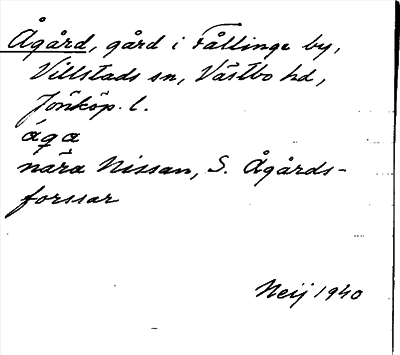 Ågård, gård i Fållinge by,
Villstads sn, Västbo hd,
Jönköp. l.
åga
nära Nissan, S. Ågårds-
forssar
Neij 1940